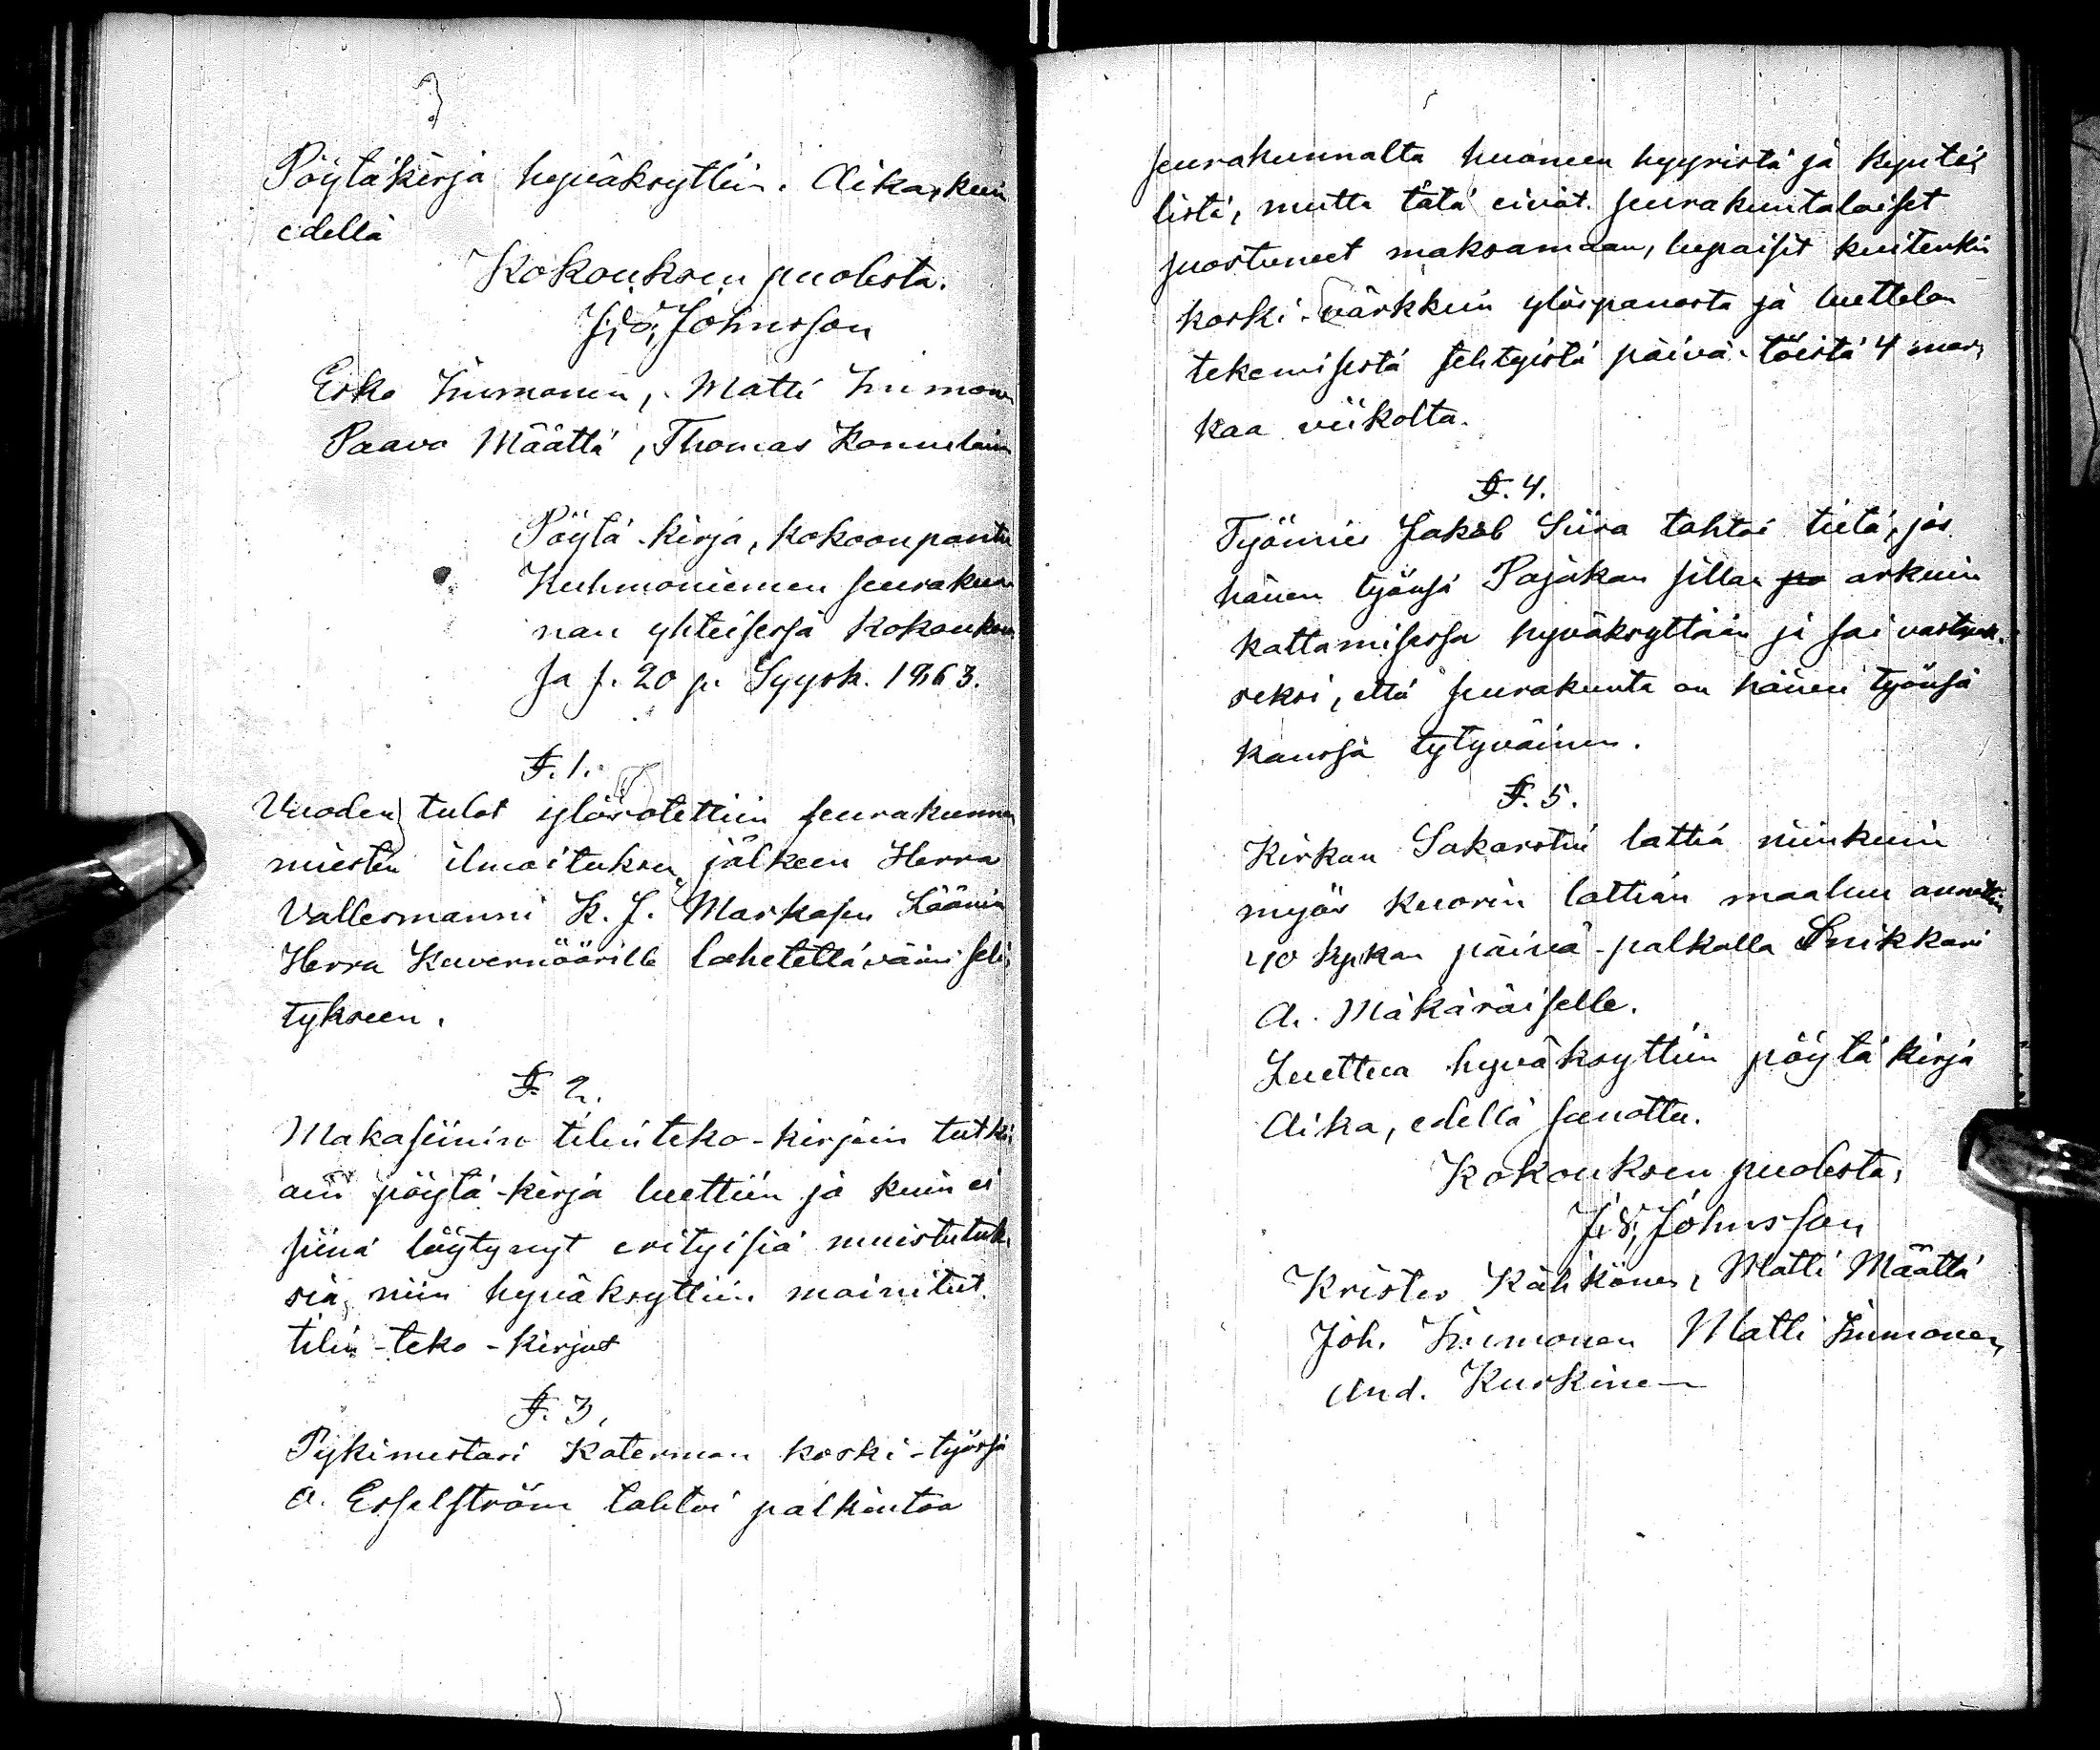 Pöytäkirja hyväksyttiin. Aika, kuin
edellä
Kokouksen puolesta.
J. S. Johnsson
Esko Immonen, Matti Immonen
Paavo Määttä, Thomas
Pöytä-kirja, kokoonpantu
Kuhmoniemen seurakun
nan yhteisessä kokoukses
sa s. 20 p. Syysk. 1863.
§. 1.
Vuoden tulot ylösotettiin seurakunnan
miesten ilmoituksen jälkeen Herra
Vallesmanni K. J. Markasen Läänin
Herra Kuvernöörille lähetettävään seli
tykseen.
§. 2.
Makasiinin tilinteko-kirjain tutki
ain pöytä-kirja luettiin ja kuin ei
siinä löytynyt erityisiä muistutuk
sia, niin hyväksyttiin mainitut
tilin-teko-kirjat
§. 3.
Pykimestari Katerman koski-työssä
A. Esselström tahtoi palkintoa
seurakunnalta huoneen hyyristä ja kynte
listä, mutta tätä eivät seurakuntalaiset
suostuneet maksamaan, lupaisit kuitenkin
koski-värkkein ylöspanosta ja luettelon
tekemisestä tehtyistä päivä-töistä 4 mark
kaa viikolta.
§. 4.
Työmies Jakob Siira tahtoi tietä, jos
hänen työnsä Pajakan sillan arkuin
kattamisessa hyväksyttäin ja sai vastauk
seksi, että seurakunta on hänen työnsä
kanssa tytyväinen.
§. 5.
Kirkon Sakarstin lattia niinkuin
myös kuorin lattian maaluu annettiin
40 kpkan päivä-palkalla Snikkari
A. Mäkäräiselle.
Luettua hyväksyttiin pöytäkirja
Aika, edellä sanottu.
Kokouksen puolesta,
J. S. Johnsson
Krister Kähkönen, Matti Määttä
Joh. Immonen Matti Immonen,
And. Kurkinen